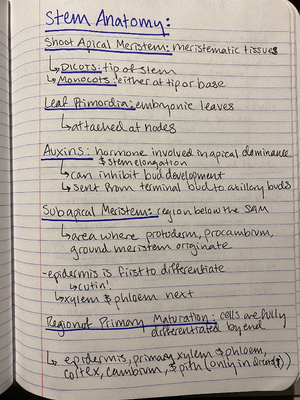 Stem Anatomy:
Shoot Apical Meristem: meristematic tissues
↳ DICOTS: tip of stem
↳ MONOCOTS: either at tip or base
Leaf Primordia: embryonic leaves
↳ attached at nodes
Auxins: hormone involved in apical dominance
& stem elongation
↳ can inhibit bud development
↳ sent from terminal bud to axillary buds
Subapical Meristem: region below the SAM
↳ area where protoderm, procambium,
ground meristem originate
-epidermis is first to differentiate
↳ cutin
↳ xylem & phloem next
Region of Primary Maturation: cells are fully
differentiated by end
↳ epidermis, primary xylem & phloem,
cortex, cambium, & pith (only in dicots)